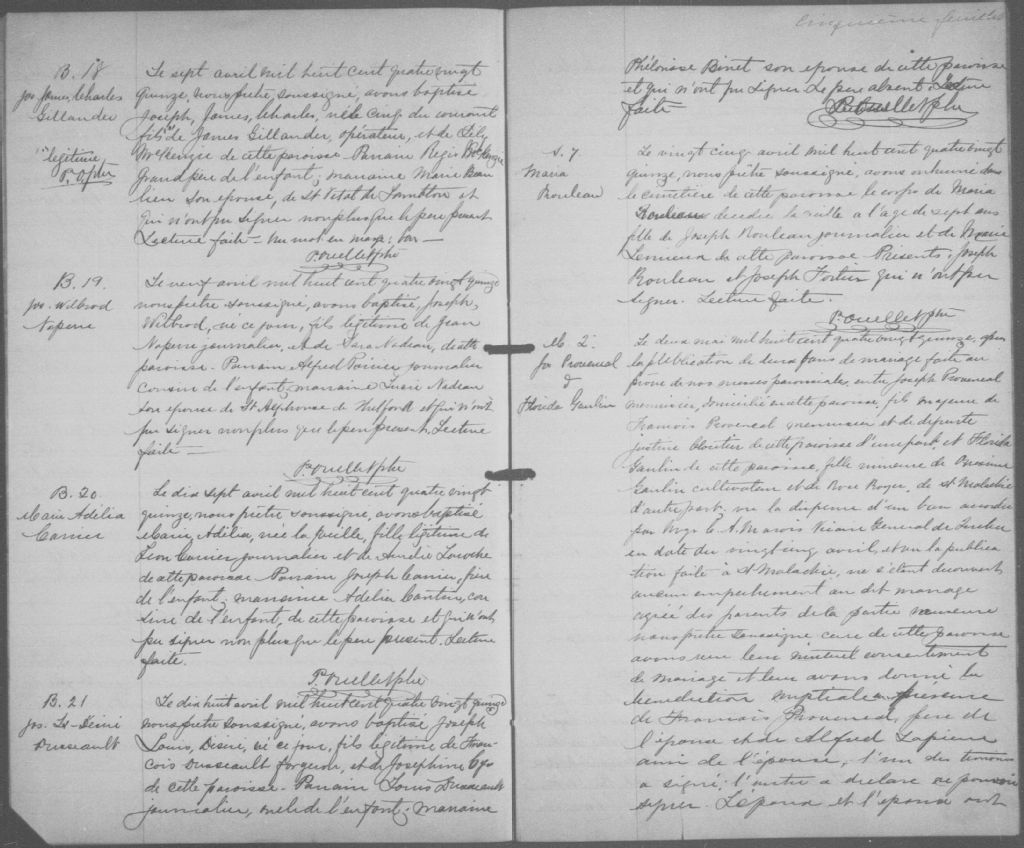 B. 18
Jos. James, Charles
Gillander
"légitime"
P. O. ptre
Le sept avril mil huit cent quatre vingt
quinze, nous prêtre soussigné, avons baptisé
Joseph, James, Charles, né le cinq du courant
fils "de James Gillander, opérateur, et de Lily
McKenzie de cette paroisse. Parrain Regis
Grand père de l'enfant; marraine Marie Beau
lieu son épouse, de St Vital de Lambton et
qui n'ont pu signer non plus que le père présent
Lecture faite - Un mot en marge: bon -
P. Ouellet ptre
B. 19.
Jos. Wilbrod
Naperre
Le neuf avril mil huit cent quatre vingt quinze
nous prêtre soussigné, avons baptisé, Joseph,
Wilbrod, né ce jour, fils légitime de Jean
Naperre journalier, et de Sara Nadeau, de cette
paroisse. Parrain Alfred Poirier journalier
cousin de l'enfant, marraine Lucie Nadeau
son épouse de St Alphonse de Thetford et qui n'ont
pu signer non plus que le père présent. Lecture
faite -
P. Ouellet ptre
B. 20
Marie Adélia
Carrier
Le dix sept avril mil huit cent quatre vingt
quinze, nous prêtre soussigné, avons baptisé
Marie, Adélia, née la veille, fille légitime de
Léon Carrier journalier et de Aurélie
de cette paroisse Parrain Joseph Carrier, frère
de l'enfant; marraine Adélia Cantin, cou
sine de l'enfant, de cette paroisse et qui n'ont
pu signer non plus que le père présent. Lecture
faite.
P. Ouellet ptre
B. 21
Jos. Ls-Désiré
Dusseault
Le dix huit avril mil huit cent quatre vingt quinze
nous prêtre soussigné, avons baptisé Joseph
Louis, Désiré, né ce jour, fils légitime de Fran
cois Dusseault forgeron, et de Josephine Cyr
de cette paroisse - Parrain Louis Dusseault
journalier, oncle de l'enfant; marraine
Cinquième feuillet
Phélonise Binet son épouse de cette paroisse
et qui n'ont pu signer Le père absent. Lecture
faite
P. Ouellet ptre
S. 7
Maria
Rouleau
Le vingt cinq avril mil huit cent quatre vingt
quinze, nous prêtre soussigné, avons inhumé dans
le cimetière de cette paroisse le corps de Maria
Rouleau décédée la veille a l'age de sept ans
fille de Joseph Rouleau journalier et de Marie
Lemieux de cette paroisse Présents: Joseph
Rouleau et Joseph Fortier qui n'ont pu
signer. Lecture faite.
P. Ouellet ptre
M. 2.
Jos Provencal
&
Florida Gaulin
Le deux mai mil huit cent quatre vingt quinze, après
la publication de deux bans de mariage faite au
prône de nos messes paroissiales, entre Joseph Provencal
menuisier, domicilié en cette paroisse, fils majeur de
Francois Provencal menuisier et de défunte
Justine Cloutier de cette paroisse d'une part; et Florida
Gaulin de cette paroisse, fille mineure de
Gaulin cultivateur et de Rose Royer, de St Malachie
d'autre part, vu la dispense d'un ban accordée
par Mgr C. A. Marois Vicaire Général de Québec
en date du vingt cinq avril, et vu la publica
tion faite à St Malachie, ne s'étant découvert
aucun empêchement au dit mariage
agréé des parents de la partie mineure
nous prêtre soussigné curé de cette paroisse
avons reçu leur mutuel consentement
de mariage et leur avons donné la
bénédiction nuptiale en présence
de Francois Provencal, père de
l'époux et de Alfred Lapierre
ami de l'épouse, l'un des témoins
a signé; l'autre a déclaré ne pouvoir
signer. L'époux et l'épouse ont